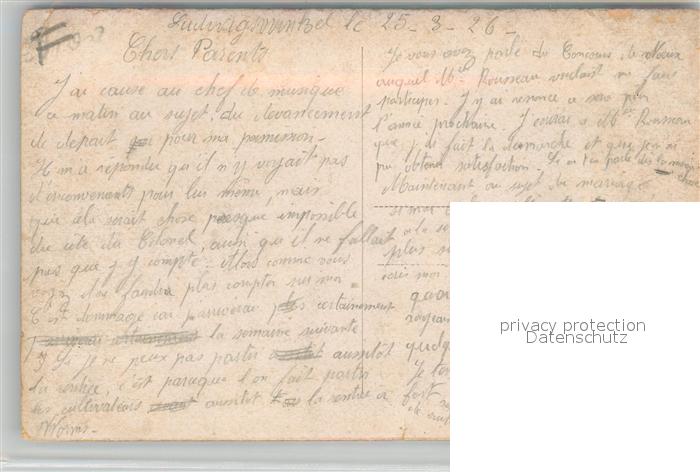 Ludwigswinkel le 25-3-26-
Chers Parents
J'ai causé au chef de musique
ce matin au sujet du devancement
de départ pour ma permission-
Il m'a répondu qu'il n'y voyait pas
d'inconvenients pour lui même, mais
que cela serait chose presque impossible
du côté du Colonel, aussi que il ne fallait
pas que j'y compte. Alors comme vous
voyez il ne faudra plus compter sur moi.
C'est dommage car certainement
la semaine suivante
Si je ne peux pas partir aussitôt
la rentrée, c'est parceque l'on fait partir
les cultivateurs aussitôt la rentrée à
Worms-
Je vous avez parlé du Concours de Meaux
auquel Mr Rousseau voulait me faire
participer. J'y ai renoncé
l'année prochaine. J'écrirai à Mr Rousseau
que j'ai fait la démarche et que je n'ai
pu obtenir satisfaction.
Maintenant au sujet du mariage
si moi
à la
plus
quan
quelq
Je
fort
privacy protection
Datenschutz